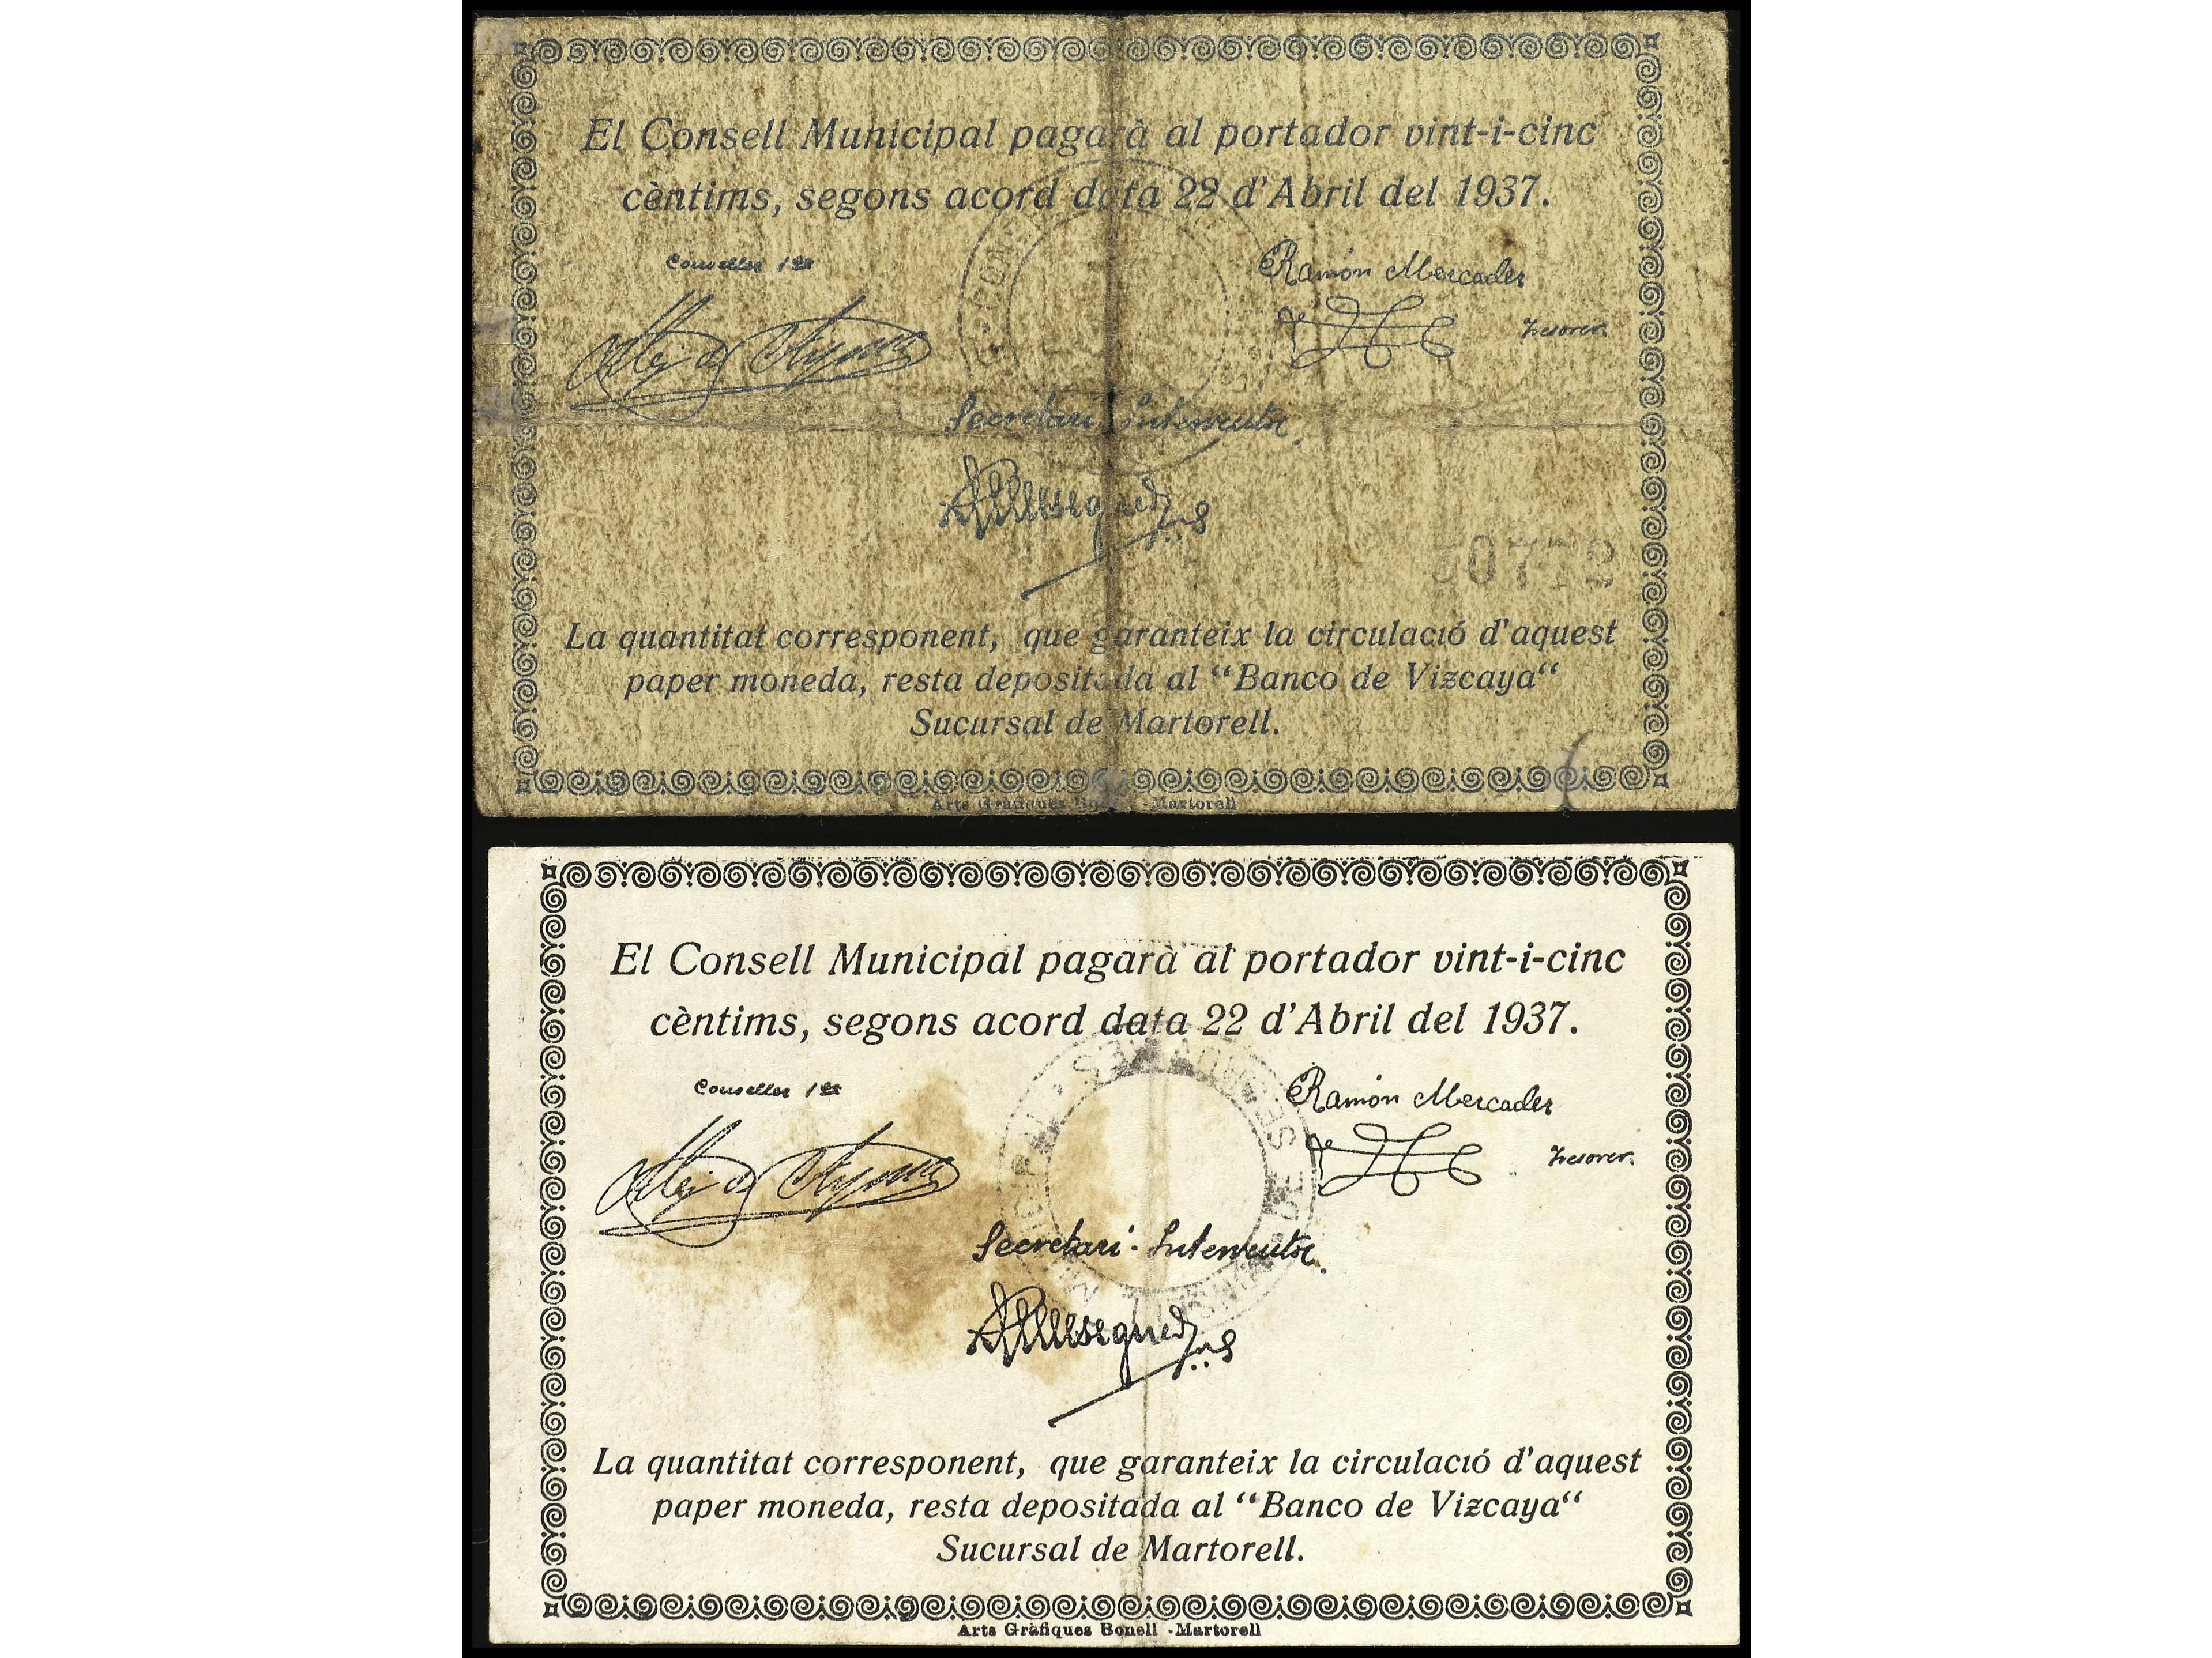 El Consell Municipal pagarà al portador vint-i-cinc
cèntims, segons acord data 22 d'Abril del 1937.
Conseller 1er
Ramón Mercader
Tresorer.
Secretari Interventor.
0772
La quantitat corresponent, que garanteix la circulació d'aquest
paper moneda, resta depositada al “Banco de Vizcaya“
Sucursal de Martorell.
Arts Gràfiques Bonell - Martorell
El Consell Municipal pagarà al portador vint-i-cinc
cèntims, segons acord data 22 d'Abril del 1937.
Conseller 1er
Ramón Mercader
Tresorer.
Secretari - Interventor.
La quantitat corresponent, que garanteix la circulació d'aquest
paper moneda, resta depositada al “Banco de Vizcaya“
Sucursal de Martorell.
Arts Gràfiques Bonell - Martorell